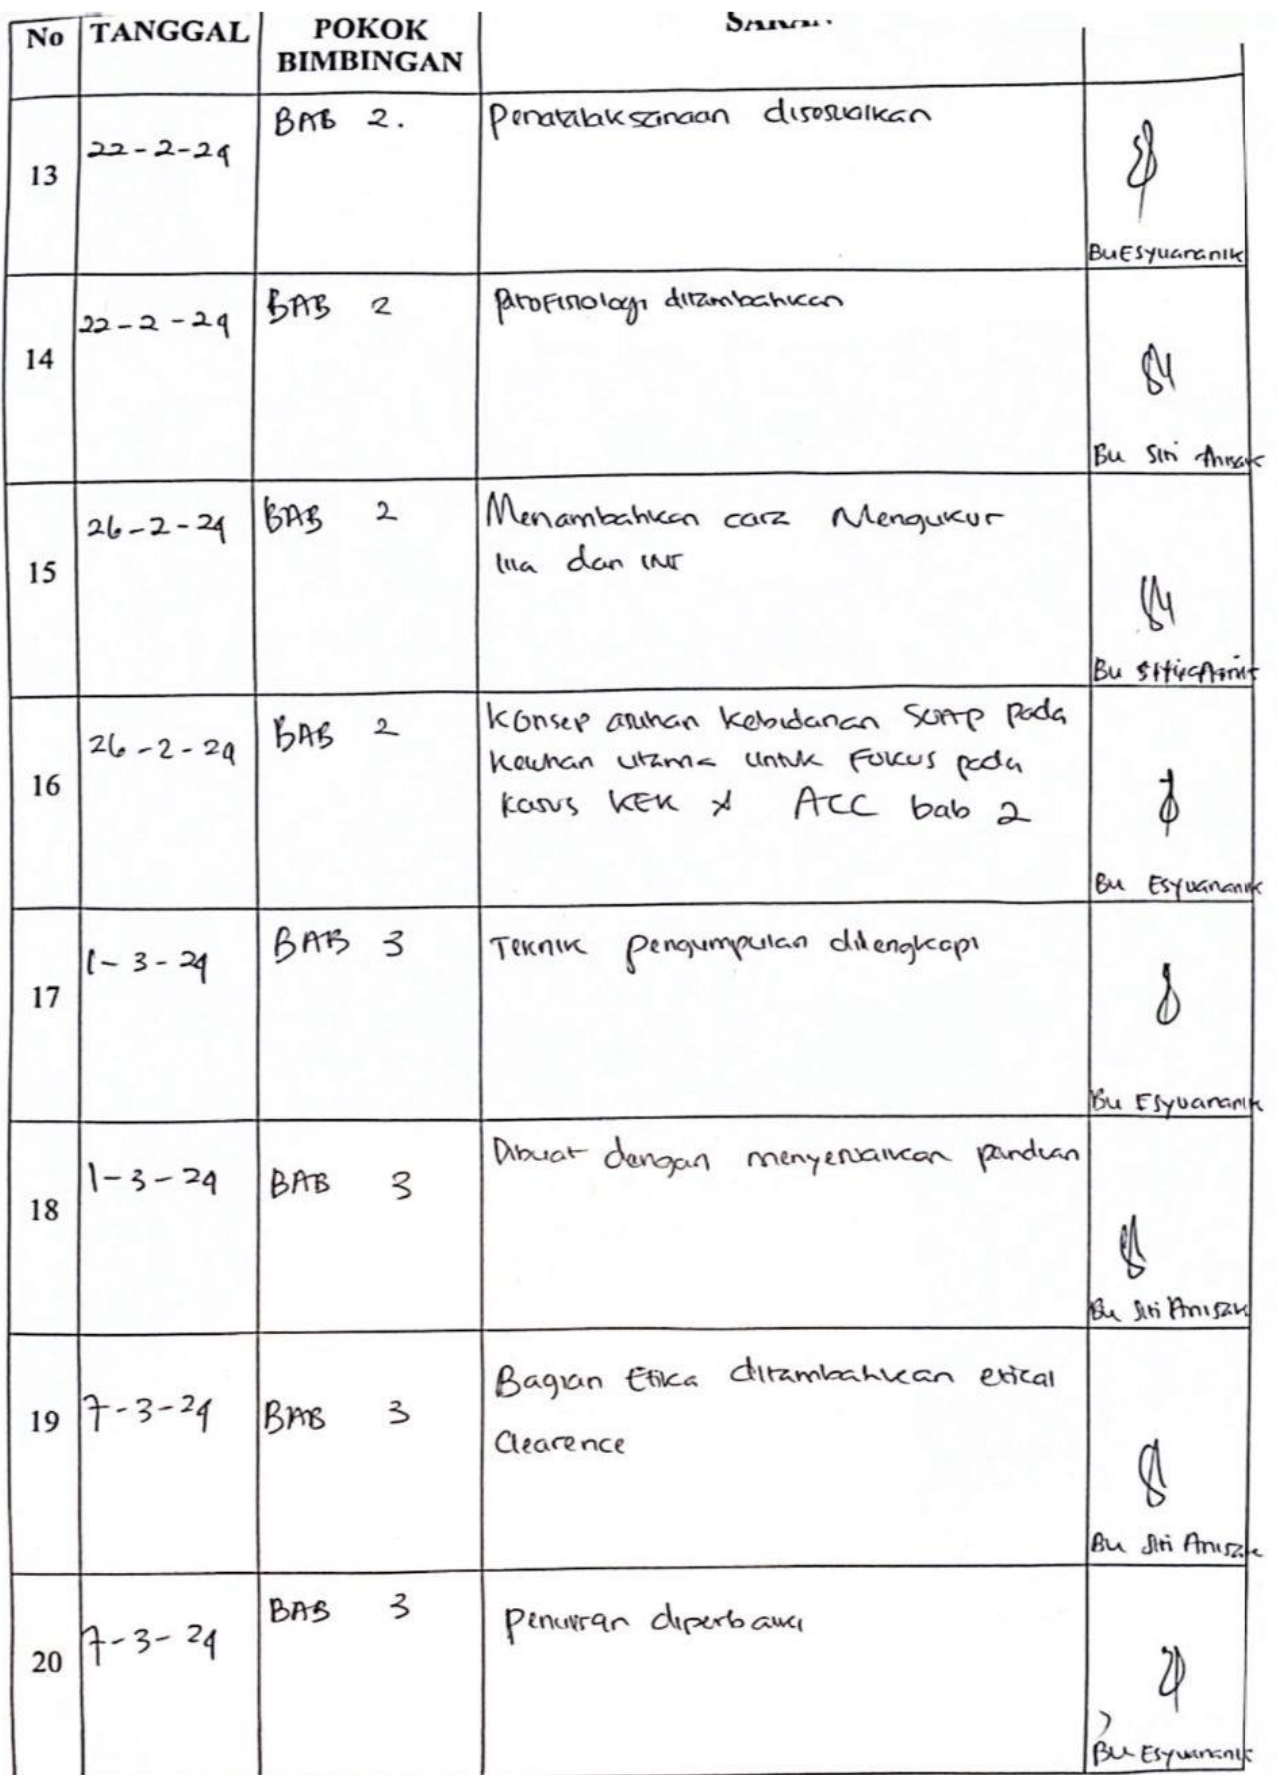 No TANGGAL POKOK BIMBINGAN SARAN
13 22-2-24 BAB 2. Penatalaksanaan disesuaikan
Bu Esyuananik
14 22-2-24 BAB 2 patofisiologi ditambahkan
Bu Siti Anisak
15 26-2-24 BAB 2 Menambahkan cara Mengukur
lila dan IMT
Bu Siti Anisak
16 26-2-24 BAB 2 Konsep asuhan kebidanan SOAP pada
keluhan utama untuk Fokus pada
kasus KEK ACC bab 2
Bu Esyuananik
17 1-3-24 BAB 3 Teknik pengumpulan dilengkapi
Bu Esyuananik
18 1-3-24 BAB 3 Dibuat dengan menyesuaikan panduan
Bu Siti Anisak
19 7-3-24 BAB 3 Bagian Etika ditambahkan etical
Clearence
Bu Siti Anisak
20 7-3-24 BAB 3 Penulisan diperbaiki
Bu Esyuananik